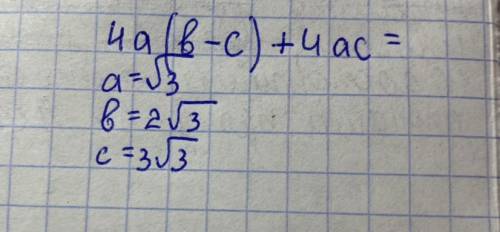 4a(в-c)+4ac=
a=√3
в=2√3
c=3√3